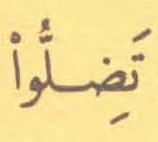 تَضِلُّواْ